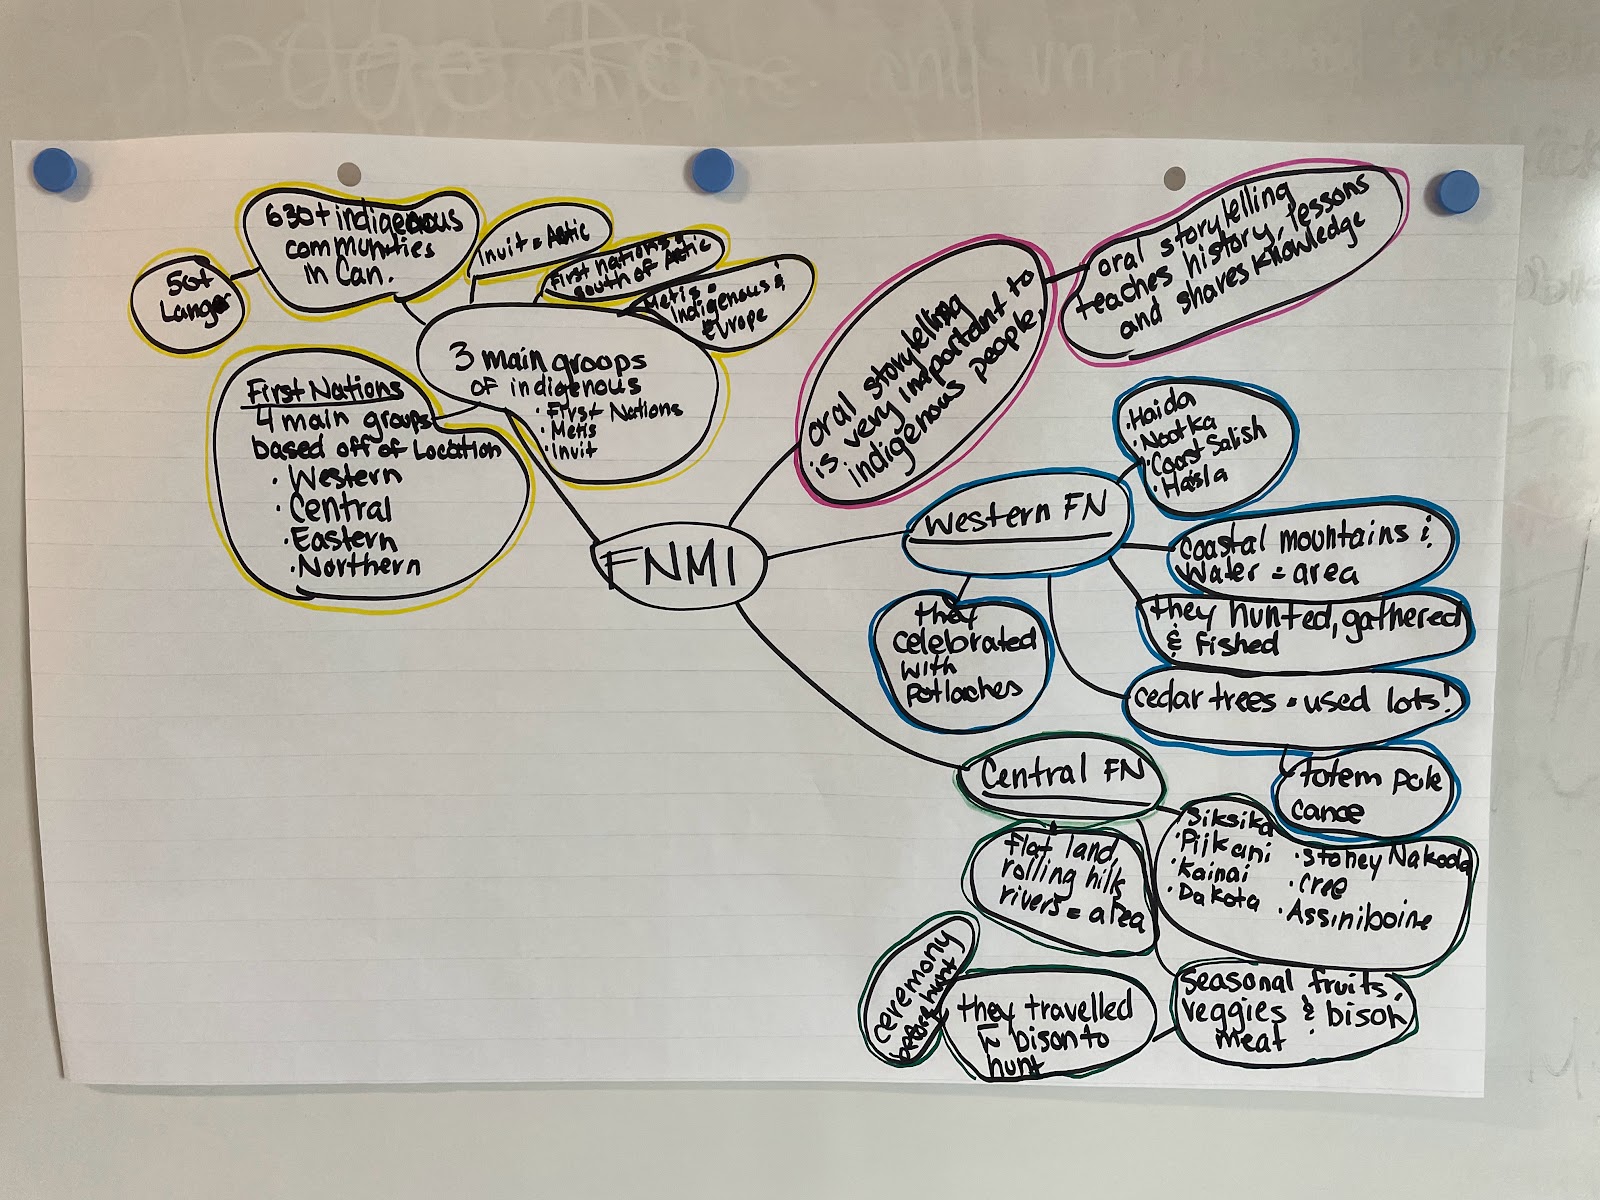 630+ indigenous
communities
in Can.
50+
Inuit = Actic
First nations =
south of Actic
Metis =
Indigenous &
Europe
3 main groops
of indigenous
· First Nations
· Metis
· Inuit
First Nations
4 main groups
based off of Location
· Western
· Central
· Eastern
· Northern
FNMI
oral storytelling
is very important to
indigenous people,
oral storytelling
teaches history, lessons
and shares knowledge
Western FN
· Haida
· Nootka
· Coast Salish
· Haisla
coastal mountains &
water = area
they hunted, gathered
& fished
cedar trees = used lots!
totem pole
canoe
they
celebrated
with
potlaches
Central FN
· Siksika
· Piikani
· Kainai
· Dakota
· Stoney Nakoda
· Cree
· Assiniboine
flat land,
rolling hills
rivers = area
seasonal fruits,
veggies & bison
meat
they travelled
bison to
hunt
ceremony
before hunt